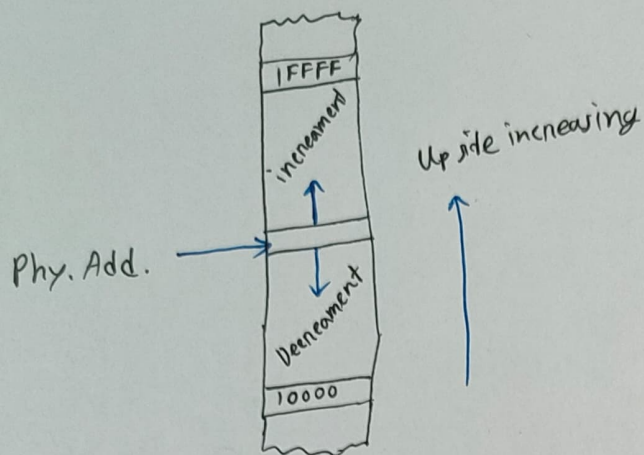 1FFFF
increament
Up side increasing
Phy. Add.
Decreament
10000